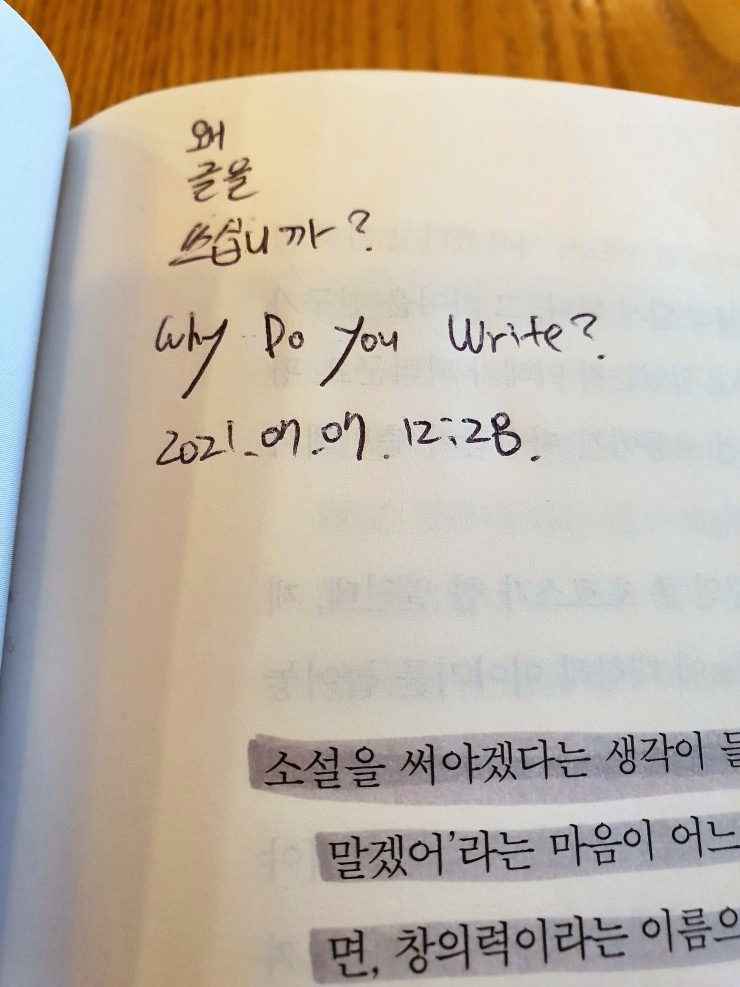 왜
글을
쓰십니까?
Why Do You Write?
2021.07.07.12:28.
소설을 써야겠다는 생각이
말겠어'라는 마음이 어느
면, 창의력이라는 이름으